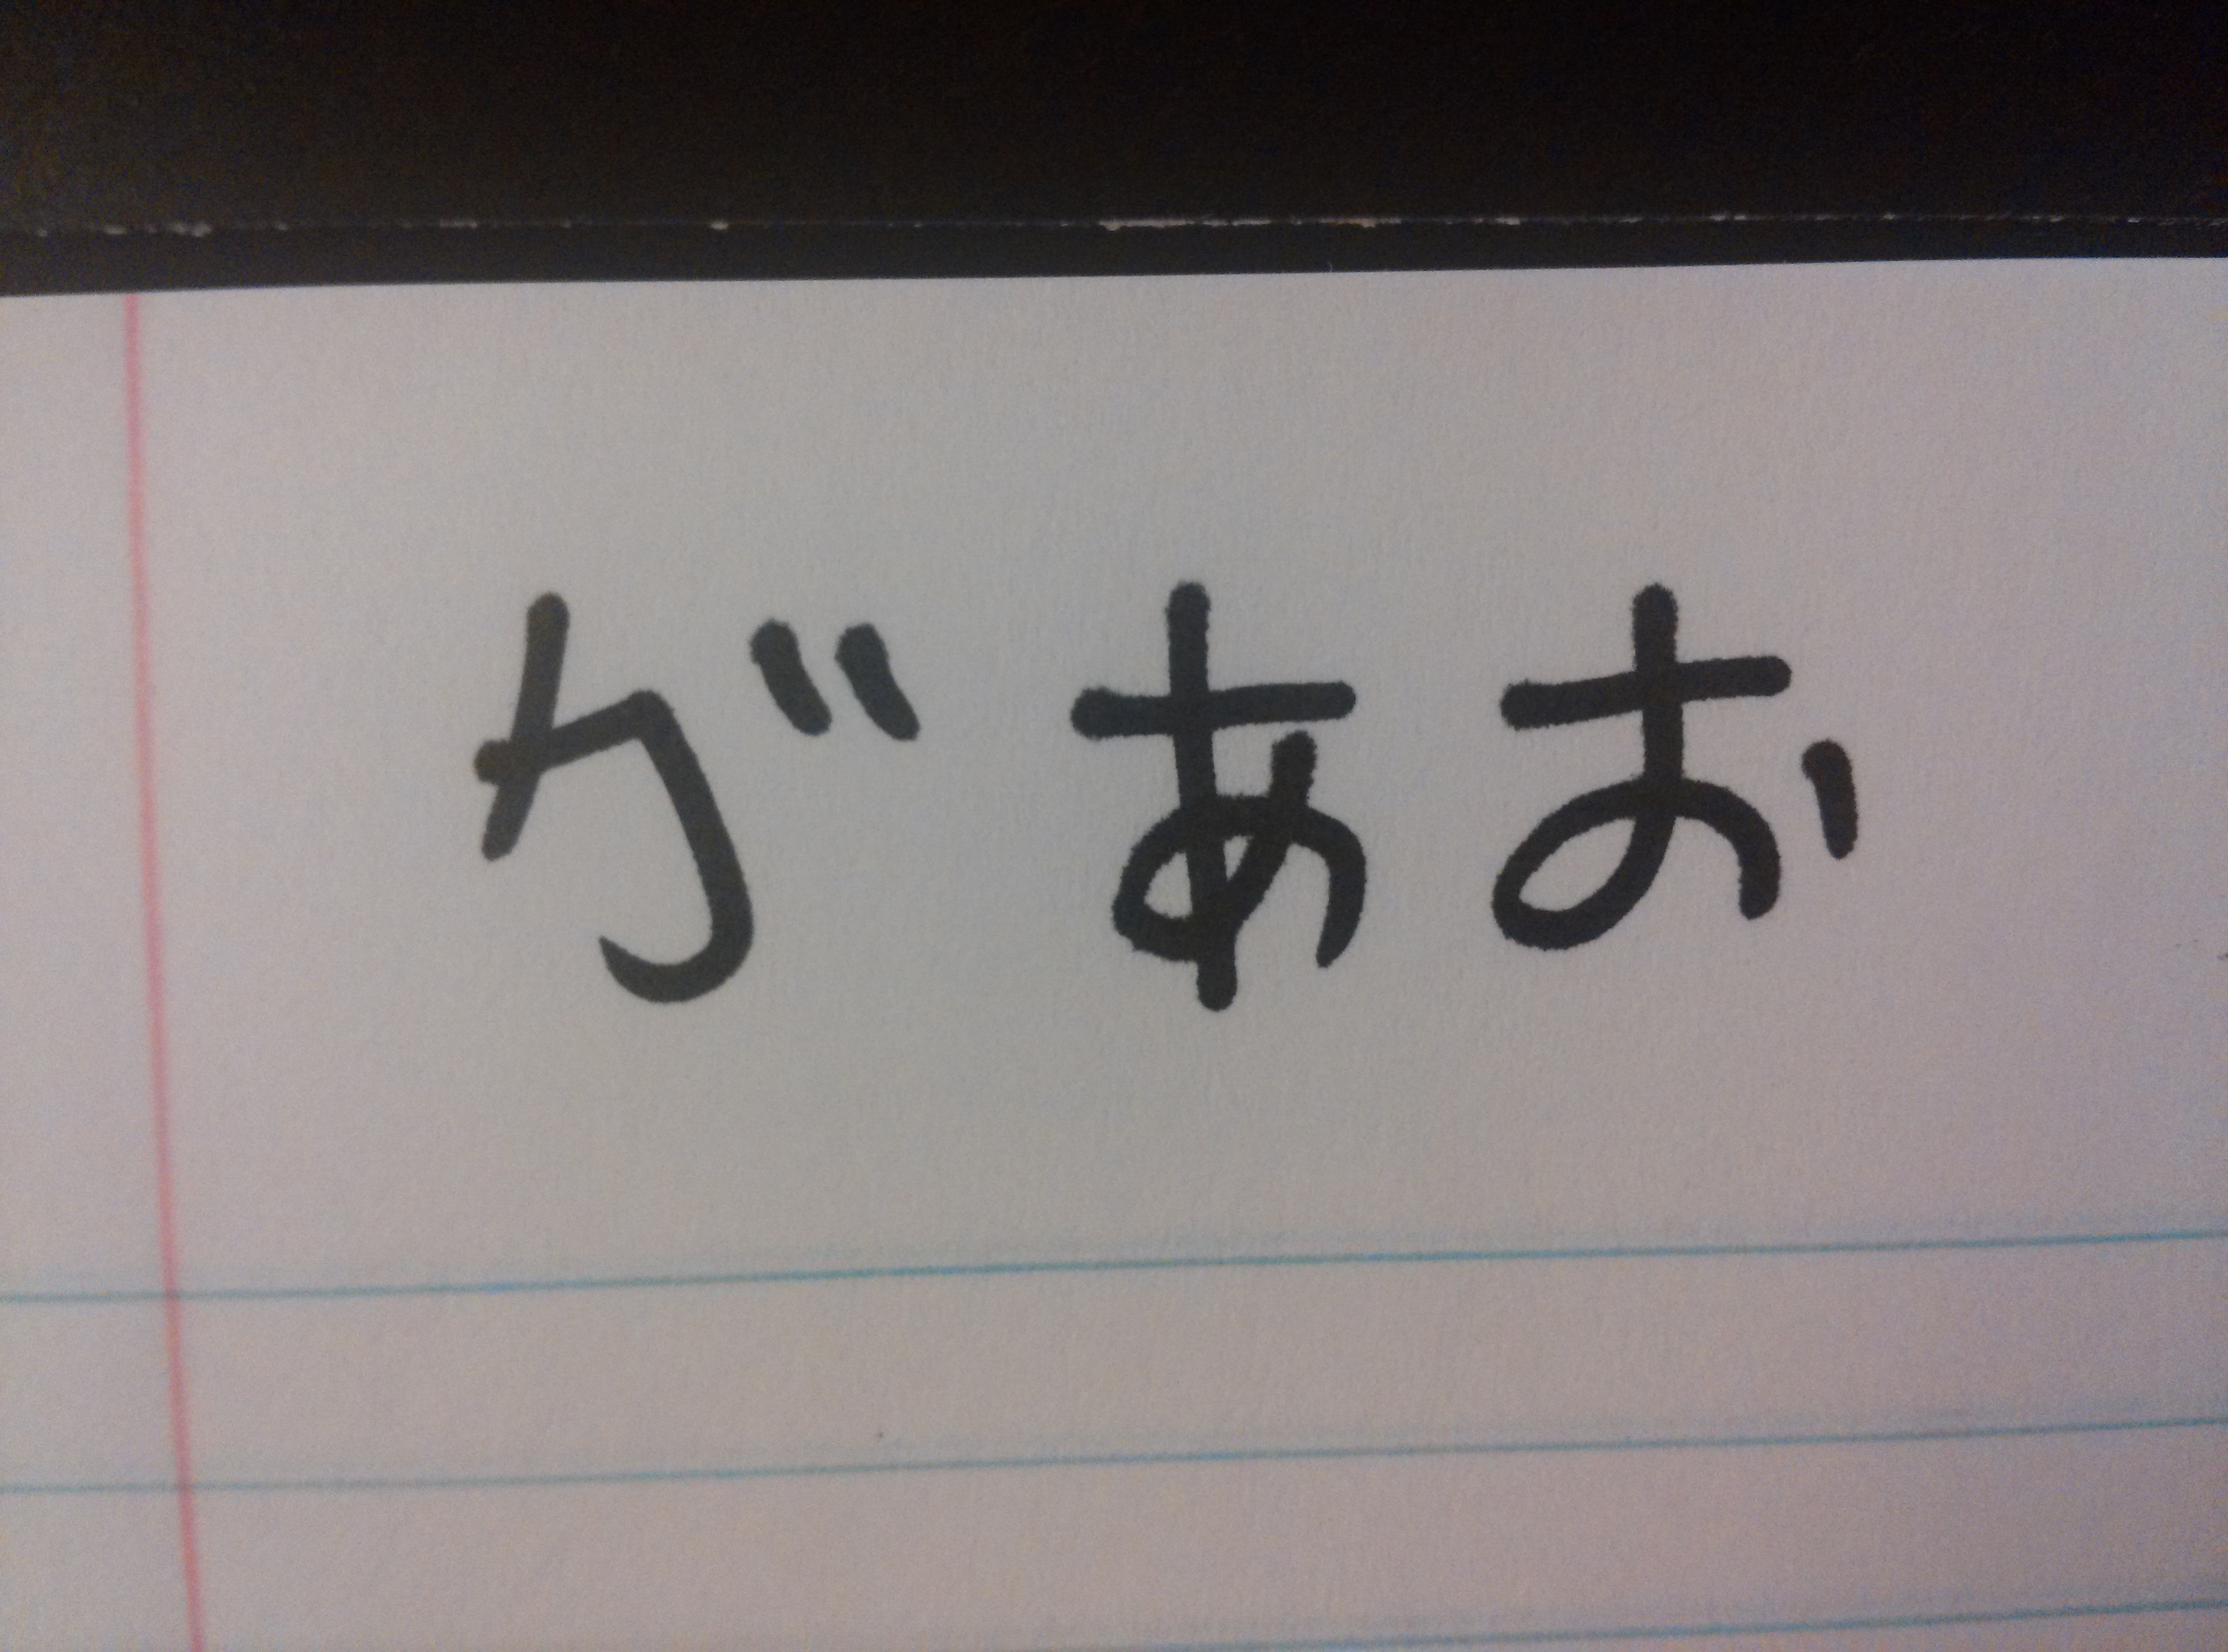 があお